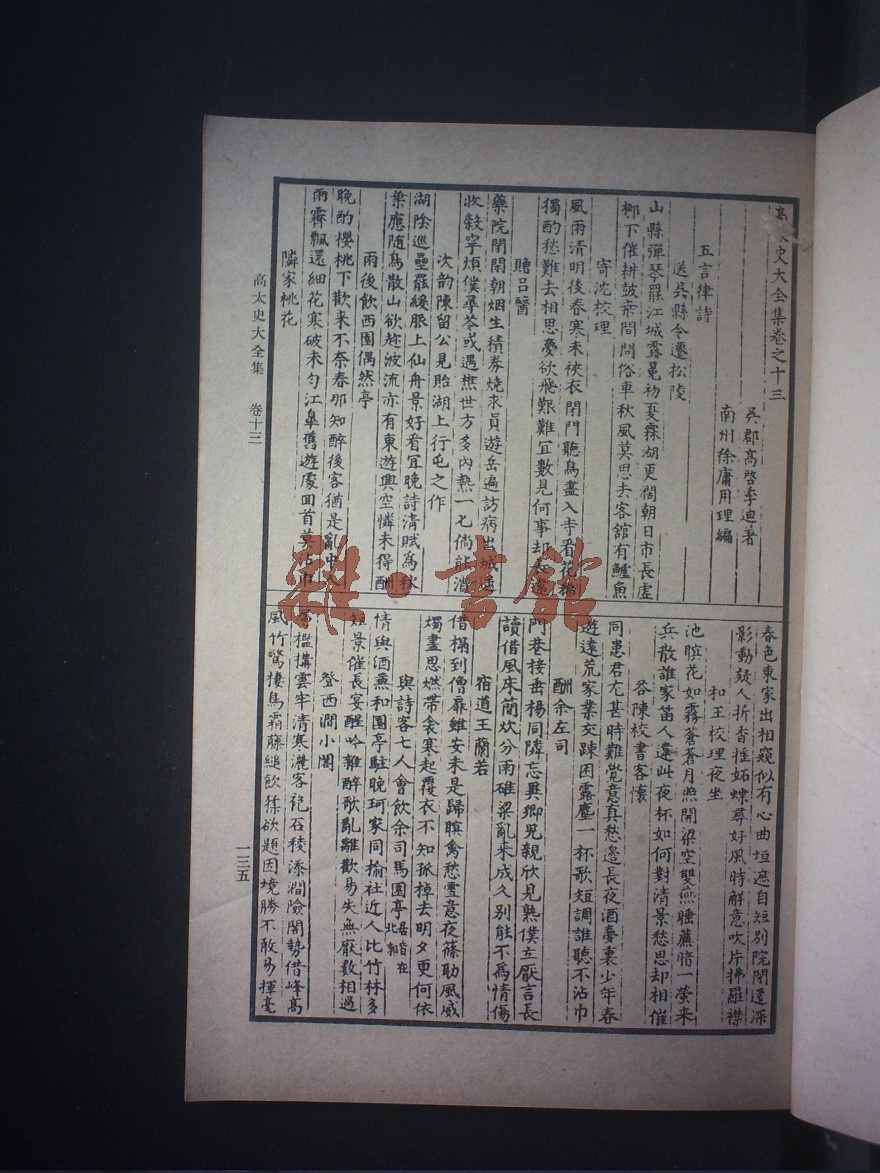 高太史大全集卷之十三
吳郡高啓季迪著
南州徐庸用理編
五言律詩
送吳縣令遷松陵
山縣彈琴罷江城露冕初夏霖湖更闊朝日市長虛
鄉下催耕鼓桑間問俗車秋風莫思去客舘有鱸魚
寄沈校理
風雨清明後春寒未裌衣閉門聽鳥盡入寺看花
獨酌愁難去相思夢欲飛艱難宜數見何事却
贈呂醫
藥院閉閑朝烟生積券燒求員遊岳遍訪病出城遙
收穀寧煩僕尋苓或遇樵世方多內熱一七倘能消
次韵陳留公見貽湖上行屯之作
湖陰巡壘罷緩服上仙舟景好看宜晚詩清賦為秋
葉應随鳥散山欲趂波流亦有東遊興空憐未得酬
雨後飲西園偶然亭
晚酌櫻桃下歡来不奈春那知醉後客猶是亂中人
雨霽飄還細花寒破未勻江臯舊遊處回首莫沾巾
隣家桃花
春色東家出相窺似有心曲垣遮自短別院閉還深
影動疑人折香揺妬蝶尋好風時解意吹片拂羅襟
和王校理夜坐
池暝花如霧蒼蒼月照閑梁空雙燕睡蕪暗一螢来
兵散誰家笛人違此夜杯如何對清景愁思却相催
答陳校書客懷
同患君尤甚時難覺意真愁邊長夜酒夢裏少年春
遊遠荒家業交踈困露塵一杯歌短調誰聽不沾巾
酬余左司
門巷接垂楊同隣忘異鄉兒親欣見熟僕立厭言長
讀借風床簡炊分雨碓梁亂来成久别能不為情傷
宿道王蘭若
借榻到僧扉雖安未是歸瞑禽愁雪意夜篠助風威
燭盡思燃帶衾寒起覆衣不知孤棹去明夕更何依
與詩客七人會飲余司馬園亭居皆在北郭
情與酒蕪和園亭駐晚珂家同榆社近人比竹林多
短景催長宴醒吟雜醉歌亂離歡易失無厭數相過
登西澗小閣
檻搆雲牢清寒灑客袍石稜添澗險閣勢借峰高
風竹驚棲鳥霜藤縋飲猱欲題因境勝不敢易揮毫
高太史大全集 卷十三
一三五
雜·書館